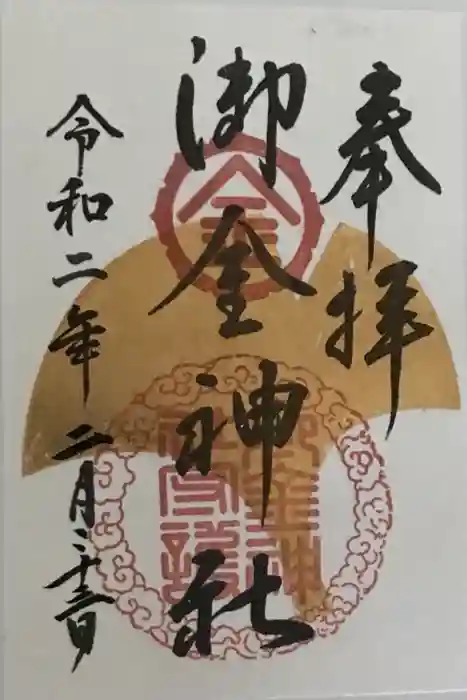 奉拝
御金神社
令和二年二月二十三日